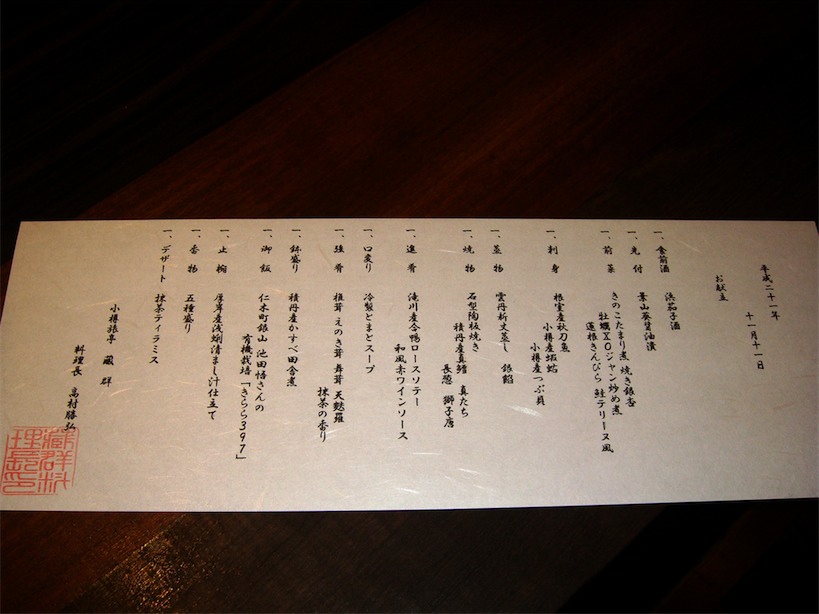 平成二十一年
十一月十一日
お献立
一、食前酒 浜茄子酒
一、先付 葉山葵醤油漬
一、前菜 きのこたまり煮 焼き銀杏
牡蠣XOジャン炒め煮
蓮根きんぴら 鮭テリーヌ風
一、刺身 根室産秋刀魚
小樽産蝦蛄
小樽産つぶ貝
一、蒸物 雲丹新丈蒸し 銀餡
一、焼物 石型陶板焼き
積丹産真鱈 真たち
長葱 獅子唐
一、進肴 滝川産合鴨ロースソテー
和風赤ワインソース
一、口変り 冷製とまとスープ
一、強肴 椎茸 えのき茸 舞茸 天麩羅
抹茶の香り
一、鉢盛り 積丹産かすべ田舎煮
一、御飯 仁木町銀山 池田悟さんの
有機栽培「きらら397」
一、止椀 厚岸産浅蜊清まし汁仕立て
一、香物 五種盛り
一、デザート 抹茶ティラミス
小樽旅亭 藏群
料理長 高村勝弘
藏群料
理長印